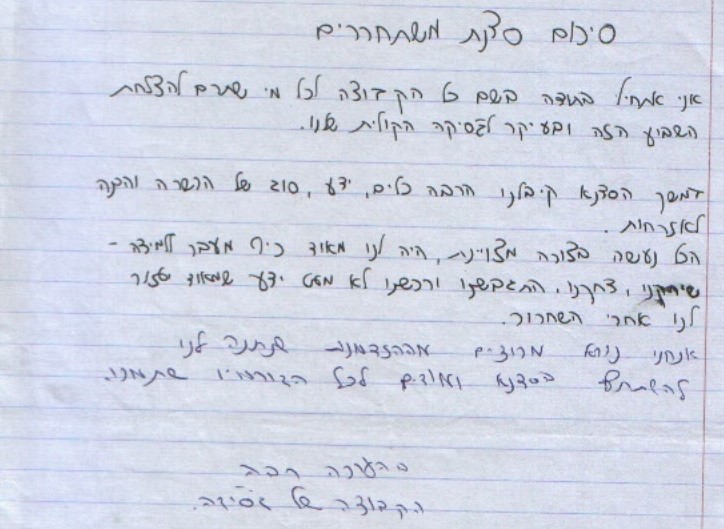 סיכום סדנת משתחררים
אני אתחיל בתודה בשם כל הקבוצה לכל מי שתרם להצלחת
השבוע הזה ובעיקר לגסיקה הקולית שלנו.
במשך הסדנא קיבלנו הרבה כלים, ידע, סוג של הכשרה והכנה
לאזרחות.
הכל נעשה בצורה מצויינת, היה לנו מאוד כיף מעבר ללמידה -
שיחקנו, צחקנו, התגבשנו ורכשנו לא מעט ידע שמאוד יעזור
לנו אחרי השחרור.
אנחנו נורא מרוצים מההזדמנות שנתנה לנו
להשתתף בסדנא ומודים לכל הגורמים שתמכו.
בהערכה רבה
הקבוצה של